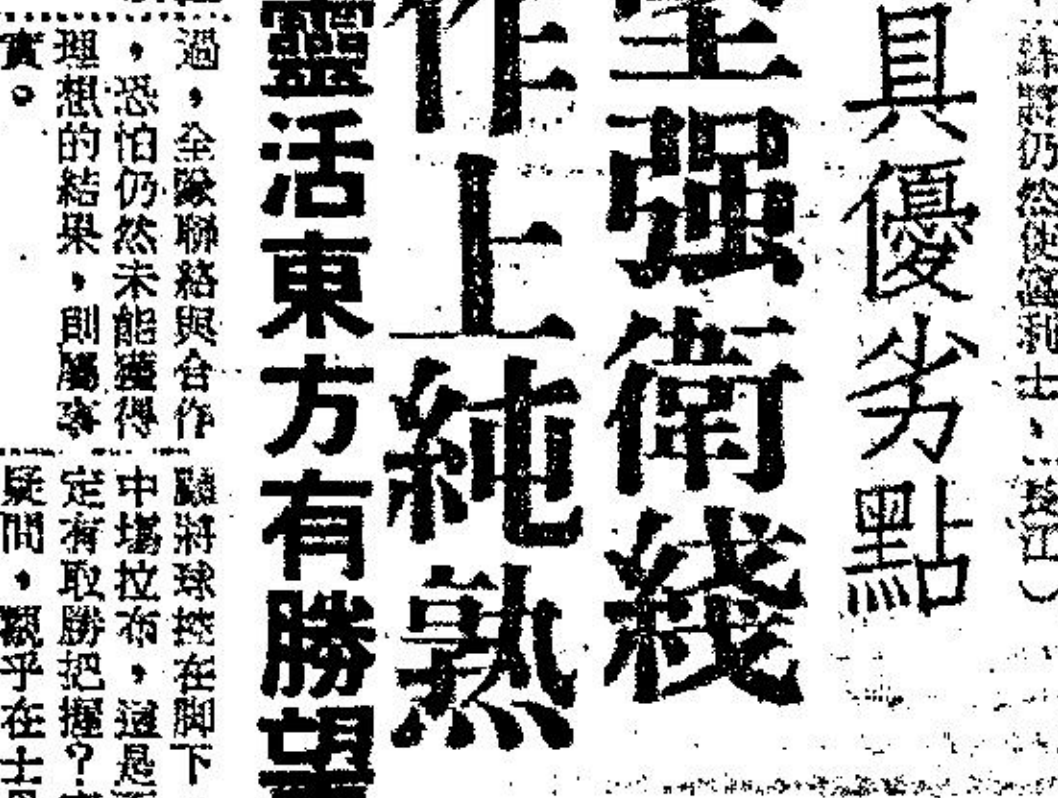 仍然使富利士、
珠江）
具優劣點
堅强衛綫
作上純熟
靈活東方有勝望
過，全隊聯絡與合作
，恐怕仍然未能獲得
理想的結果，則屬事
實。
將球控在脚下
中場拉布，這是
定有取勝把握？
疑問，觀乎在士